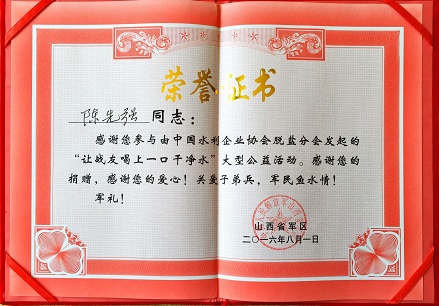 荣誉证书
陈先强 同志：
感谢您参与由中国水利企业协会脱盐分会发起的
“让战友喝上一口干净水”大型公益活动。感谢您的
捐赠，感谢您的爱心！关爱子弟兵，军民鱼水情！
军礼！
山西省军区
二〇一六年八月一日